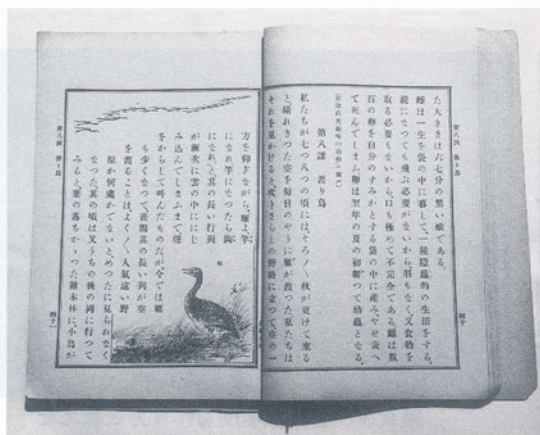 第八課 渡り鳥
四十
た大きさは六七分の黒い蛾である。
雌は一生を袋の中に暮して、一種隠遁的の生活をする。
親になつても飛ぶ必要がないから、羽もなく、又食物を
取る必要もないから、口も極めて不完全である。雌は数
百の卵を自分のすみかとする袋の中に産み、やせ衰へ
て死んでしまふ。卵は翌年の夏の初孵つて幼蟲となる。
第八課 渡り鳥
私たちが七つ八つの頃には、そろ〳〵秋が更けて来る
と、晴れきつた空を毎日のやうに雁が渡つた。私たちは
それを見かけると、吹きさらしの野路に立つて、空の一
方を仰ぎながら、「雁よ、竿
になれ、竿になつたら鉤
になれ。」と、其の長い行列
が漸次に雲の中にに
み込んでしまふまで、聲
をからして叫んだものだが、今では雁
も少くなつて、蘆間其の長い列が空
を渡ることは、よく〳〵人氣遠い野
原か何處かでないと、めつたに見られなく
なつた。其の頃は又うちの後の岡に行つて
みると、葉の落ちかゝつた雑木林に、小鳥が
雁
第八課 渡り鳥
四十一